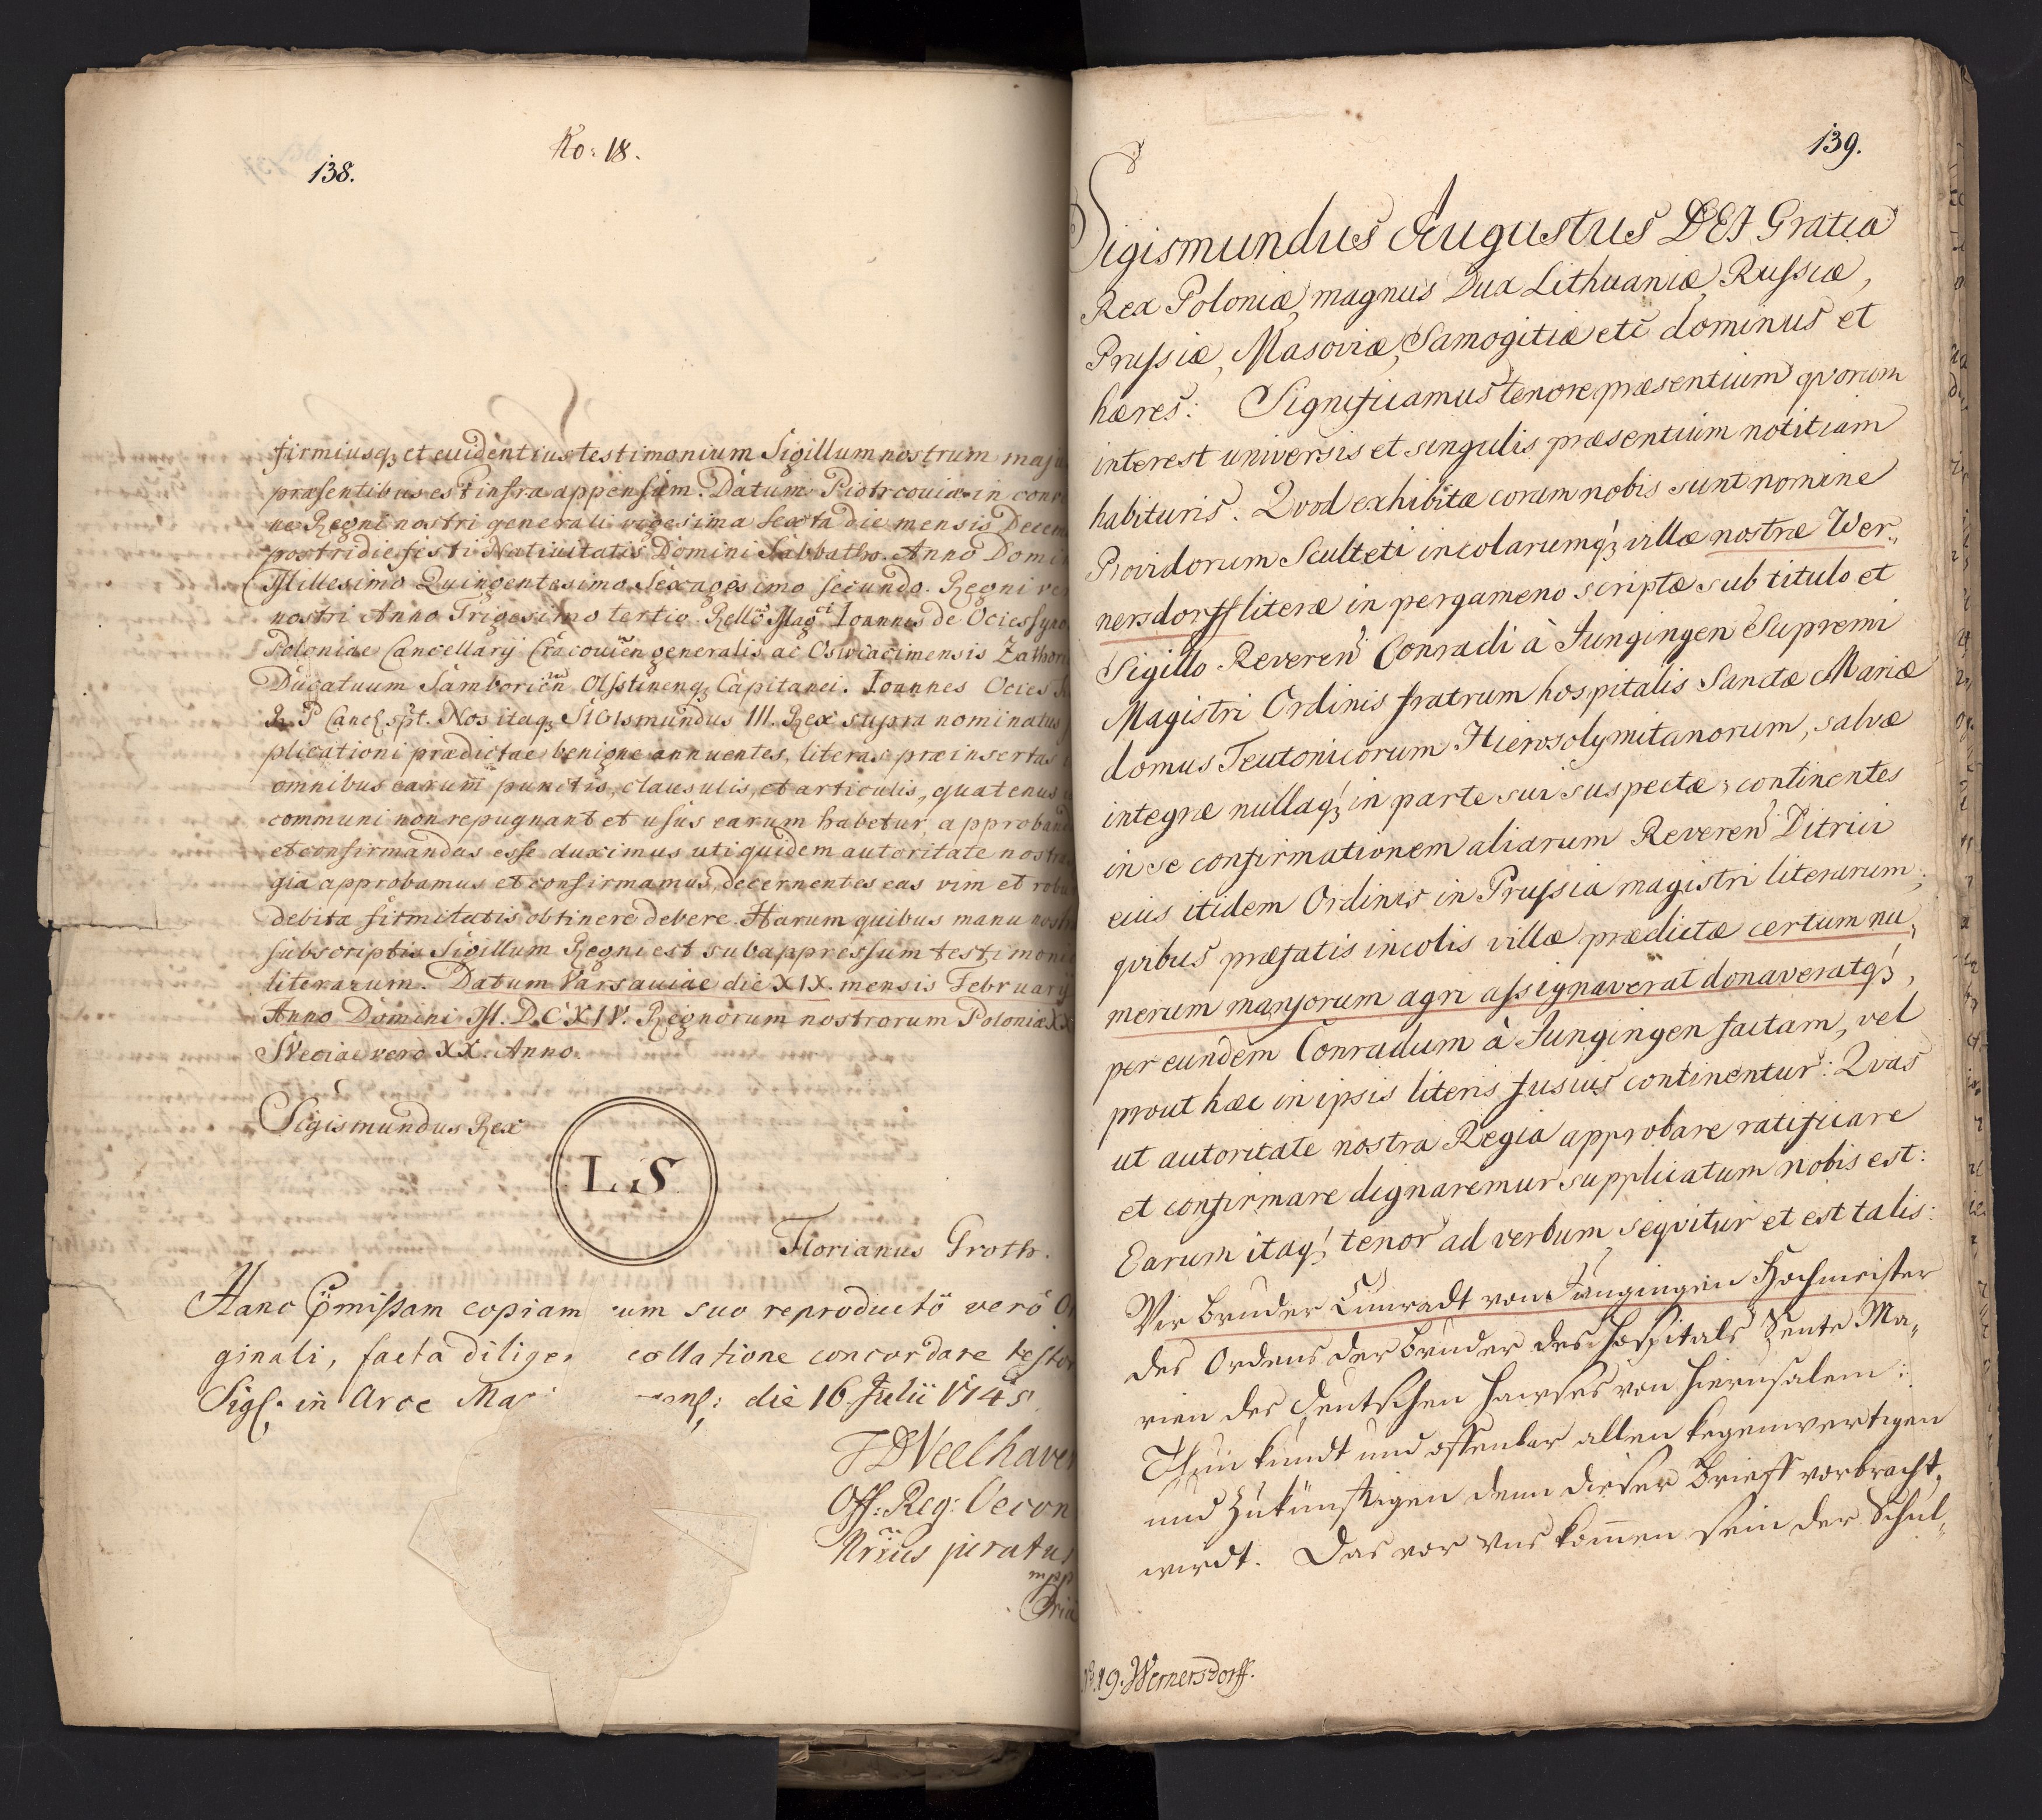 138.
No: 18.
firmiusq3 et euidentius testimonium Sigillum nostrum maju
præsentibus est infra appensum. Datum Piotrcouiæ in conve
ne Regni nostri generali vigesima sexta die mensis Decem
postridie festi Natiuitatis Domini Sabbatho. Anno Domi
Millesimo Quingentesimo Sexagesimo secundo. Regni ve
nostri Anno Trigesimo tertio. Rello Mag Ioannis de Ocies
Poloniae Cancellarij Cracouien generalis ac Oswiacimensis Zathori
Ducatuum Samborien Olstinenq3 Capitanei. Ioannes Ocies
R. P Canc spt. Nos itaq3 SIGIsmundus III. Rex supra nominatus
plicationi prædictae benigne annuentes, literas præinsertas
omnibus earum punctis, clausulis, et articulis, quatenus
communi non repugnant et usus earum habetur, approband
et confirmandas esse duximus uti quidem autoritate nostra
gia approbamus et confirmamus, decernentes eas vim et robu
debita firmitatis obtinere debere. Harum quibus manu nostr
subscriptis Sigillum Regni est subappressum testimoni
literarum. Datum Varsauiae die XIX. mensis Februarij
Anno Domini M.D.C.XIV. Regnorum nostrorum Poloniæ XX
Sveciae vero XX. Anno.
Sigismundus Rex
L.S.
Florianus Groth.
Hanc missam copiam cum suo reproducto vero O
ginali, facta dilige collatione concordare testor
Sigl. in Arce Ma die 16 Julii 1745
Off: Reg: Oecon
Nrius juratus
mpp
139.
Sigismundus Augustus DEI Gratia
Rex Poloniæ, magnus Dux Lithuaniæ, Russiæ,
Prussiæ, Masoviæ, Samogitiæ etc dominus et
hæres: Significamus tenore præsentium qvorum
interest universis et singulis præsentium notitiam
habituris. Qvod exhibitæ coram nobis sunt nomine
Providorum Sculteti incolarumq3 villæ nostræ Wer„
nersdorff literæ in pergameno scriptæ sub titulo et
Sigillo Reveren Conradi à Jungingen Supremi
Magistri Ordinis fratrum hospitalis Sanctæ Mariæ
domus Teutonicorum Hierosolymitanorum, salvæ
integræ nullaq3 in parte sui suspectæ; continentes
in se confirmationem aliarum Reveren Ditrici
eius itidem Ordinis in Prussia magistri literarum,
qvibus præfatis incolis villæ prædictæ certum nu„
merum mansorum agri assignaverat donaveratq3,
per eundem Conradum à Jungingen factam, vel
prout hæc in ipsis literis fusius continentur: Qvas
ut autoritate nostra Regia approbare ratificare
et confirmare dignaremur supplicatum nobis est:
Earum itaq3 tenor ad verbum seqvitur et est talis:
Wir bruder Cunradt von Jungingen Hochmeister
des Ordens der bruder des Hospitals Sente Ma„
rien des deutschen hawses von Hierusalem:
Thun kundt und offenbar allen kegenwertigen
und Zukünftigen denn dieser Brieff vorbracht
wirdt. Das vor vns kommen sein der Schul„
No. 19. Wernersdorff.